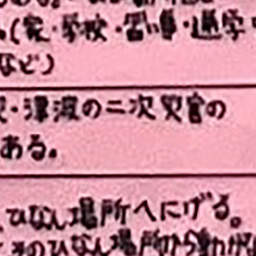 (家・学校・習い事・通学
など)
・津波の二次災害の
ある。
ひなん場所へにげる。
そのひなん場所から動か